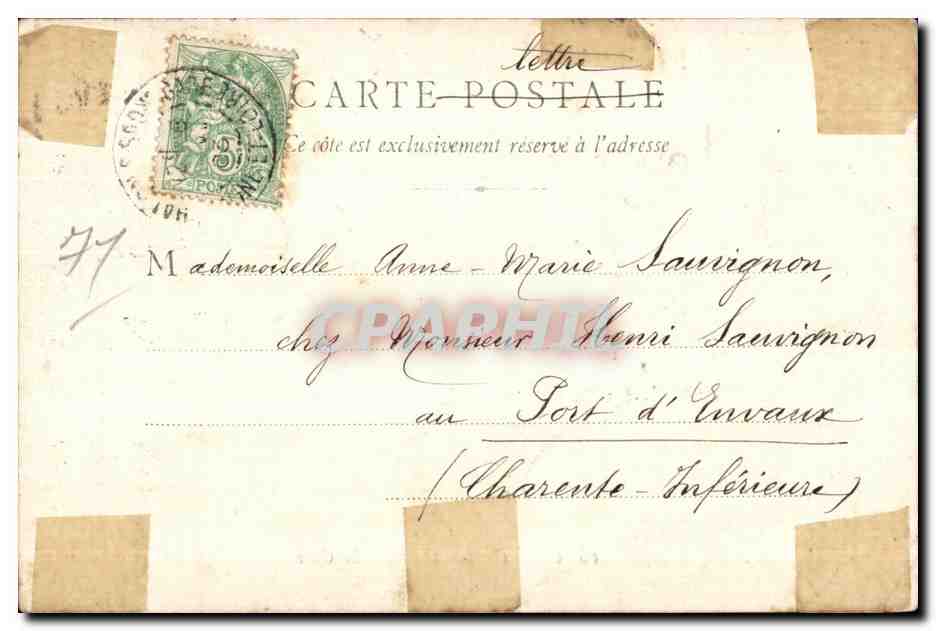 lettre
CARTE POSTALE
Ce côté est exclusivement réservé à l'adresse
POSTE
77
Mademoiselle Anne-Marie Sauvignon,
CPAPHIL
chez Monsieur Henri Sauvignon
au Port d'Envaux
(Charente-Inférieure)